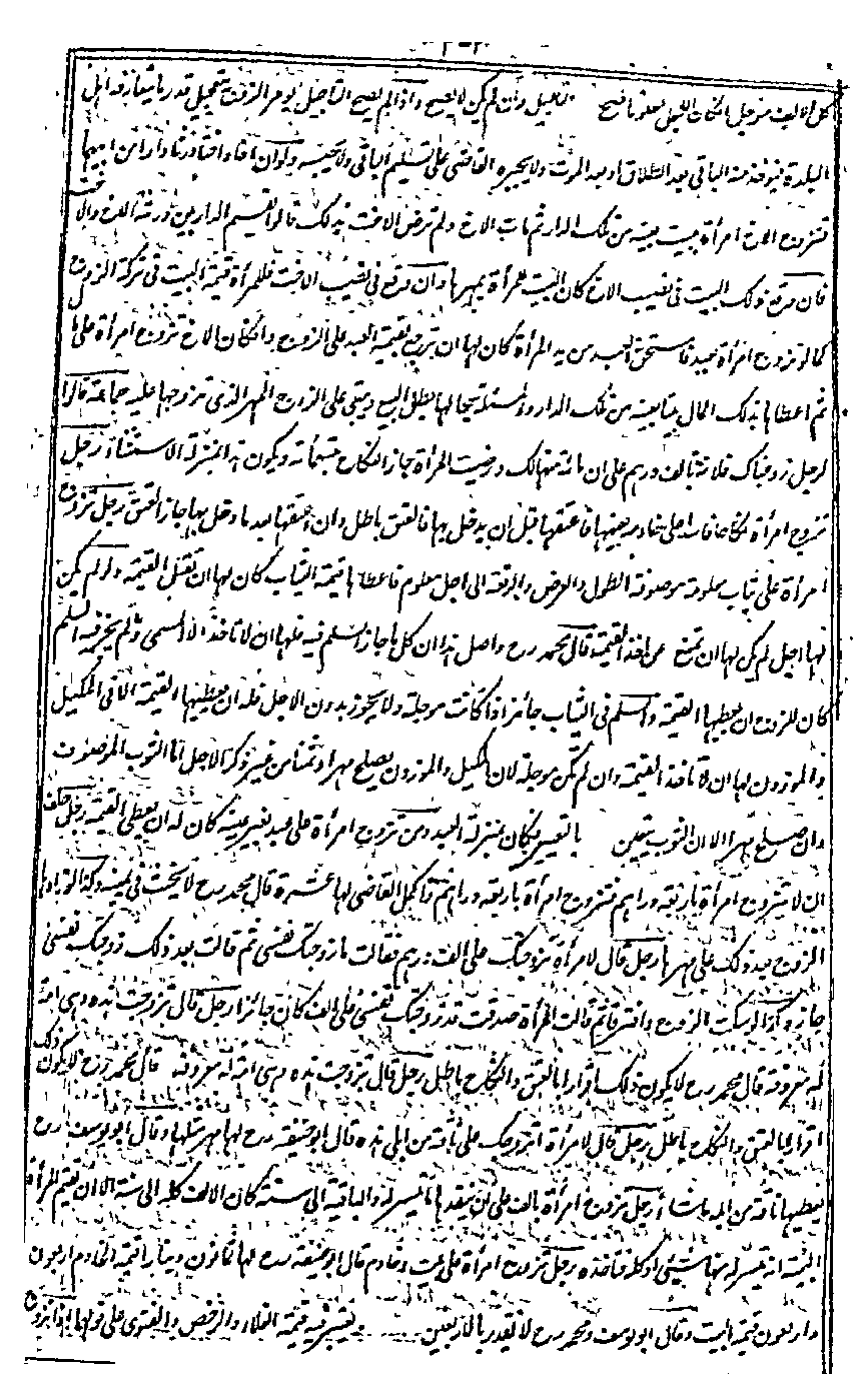 كل الالف مؤجل ان كان الاجل معلوما صح التاجيل وان لم يكن لا يصح واذا لم يصح التاجيل يؤمر الزوج بتعجيل قدر ما يتعارفه اهل
البلدة فيؤخذ منه الباقي بعد الطلاق او بعد الموت ولا يجبره القاضي على تسليم الباقي ولا يحبسه ولو ان اخا واختا ورثا دارا من ابيهما
فتزوج الاخ امرأة ببيت بعينه من تلك الدار ثم مات الاخ ولم ترض الاخت بذلك قالوا تقسم الدار بين ورثة الاخ والاخت
فان وقع ذلك البيت في نصيب الاخ كان البيت للمرأة بمهرها وان وقع في نصيب الاخت فللمرأة قيمة البيت في تركة الزوج
كما لو تزوج امرأة بعبد فاستحق العبد من يد المرأة كان لها ان ترجع بقيمة العبد على الزوج وان كان الاخ تزوج امرأة على
ثم اعطاها بذلك المال بيتا بعينه من تلك الدار والمسئلة بحالها بطل البيع ويبقى على الزوج المهر الذي تزوجها عليه جماعة قالوا
لرجل زوجناك فلانة بالف درهم على ان مائة منها لك ورضيت المرأة جاز النكاح بتسعمائة ويكون هذا بمنزلة الاستثناء رجل
تزوج امرأة نكاحا فاسدا على خادم بعينها فاعتقها قبل ان يدخل بها فالعتق باطل وان اعتقها بعد ما دخل بها جاز العتق رجل تزوج
امرأة على ثياب معلومة موصوفة الطول والعرض والرقعة الى اجل معلوم فاعطاها قيمة الثياب كان لها ان لا تقبل القيمة ولو لم يكن
لها اجل لم يكن لها ان تمتنع من اخذ القيمة قال محمد رح واصل هذا ان كل ما جاز السلم فيه فلها ان لا تاخذ الا المسمى وما لم يجز فيه السلم
كان للزوج ان يعطيها القيمة والسلم في الثياب جائز اذا كانت مؤجلة ولا يجوز بدون الاجل فله ان يعطيها القيمة الا في المكيل
والموزون لها ان لا تاخذ القيمة وان لم تكن مؤجلة لان المكيل والموزون يصلح مهرا وثمنا من غير ذكر الاجل اما الثوب الموصوف
وان صلح مهرا الا ان الثوب يتعين بالتعيين فكان بمنزلة العبد ومن تزوج امرأة على عبد بغير عينه كان له ان يعطي القيمة رجل حلف
ان لا يتزوج امرأة باربعة دراهم فتزوج امرأة باربعة دراهم فاكمل القاضي لها عشرة قال محمد رح لا يحنث في يمينه وكذا لو زادها
الزوج بعد ذلك على مهرها رجل قال لامرأة تزوجتك على الف درهم فقالت ما زوجتك نفسي ثم قالت بعد ذلك زوجتك نفسي
جاز وكذا لو سكت الزوج وافترقا ثم قالت المرأة صدقت قد زوجتك نفسي على الف كان جائزا رجل قال تزوجت هذه وهي امة
له معروفة قال محمد رح لا يكون ذلك اقرارا بالعتق والنكاح باطل رجل قال تزوجت هذه وهي امة له معروفة قال محمد رح لا يكون ذلك
اقرارا بالعتق والنكاح باطل رجل قال لامرأة اتزوجك على ناقة من ابلي هذه قال ابو حنيفة رح لها مهر مثلها وقال ابو يوسف رح
يعطيها ناقة من ابله ما شاء رجل تزوج امرأة بالف على ان ينقدها ما تيسر له والباقية الى سنة كان الالف كله الى سنة الا ان تقيم المرأة
البينة انه تيسر له منها شيئ او كله فتاخذه رجل تزوج امرأة على بيت وخادم قال ابو حنيفة رح لها ثمانون دينارا قيمة الخادم اربعون
واربعون قيمة البيت وقال ابو يوسف ومحمد رح لا يقدر بالاربعين ويعتبر فيه قيمة الغلاء والرخص والفتوى على قولهما اذا تزوج